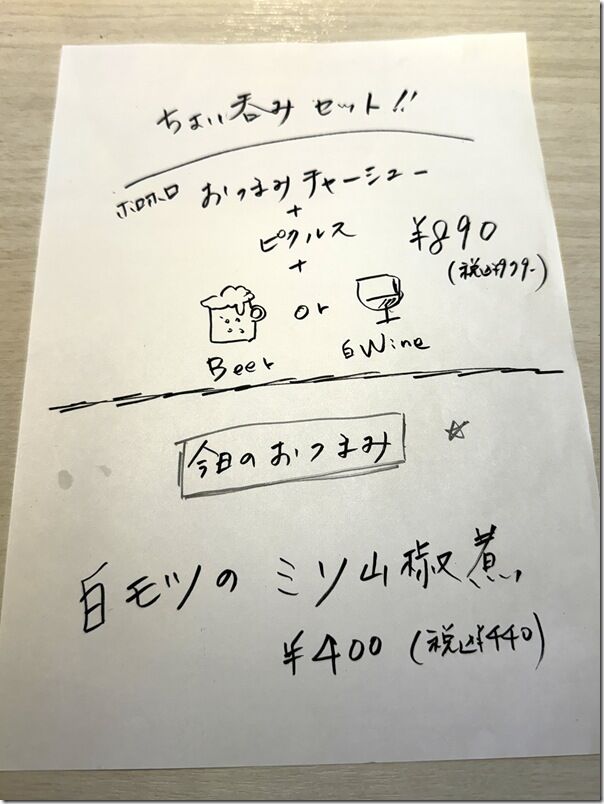 ちょい呑みセット!!
ホロホロ おつまみチャーシュー
+
ピクルス
+
¥890
(税込¥979-)
or
Beer 白Wine
今日のおつまみ ☆
白モツのミソ山椒煮
¥400 (税込¥440)